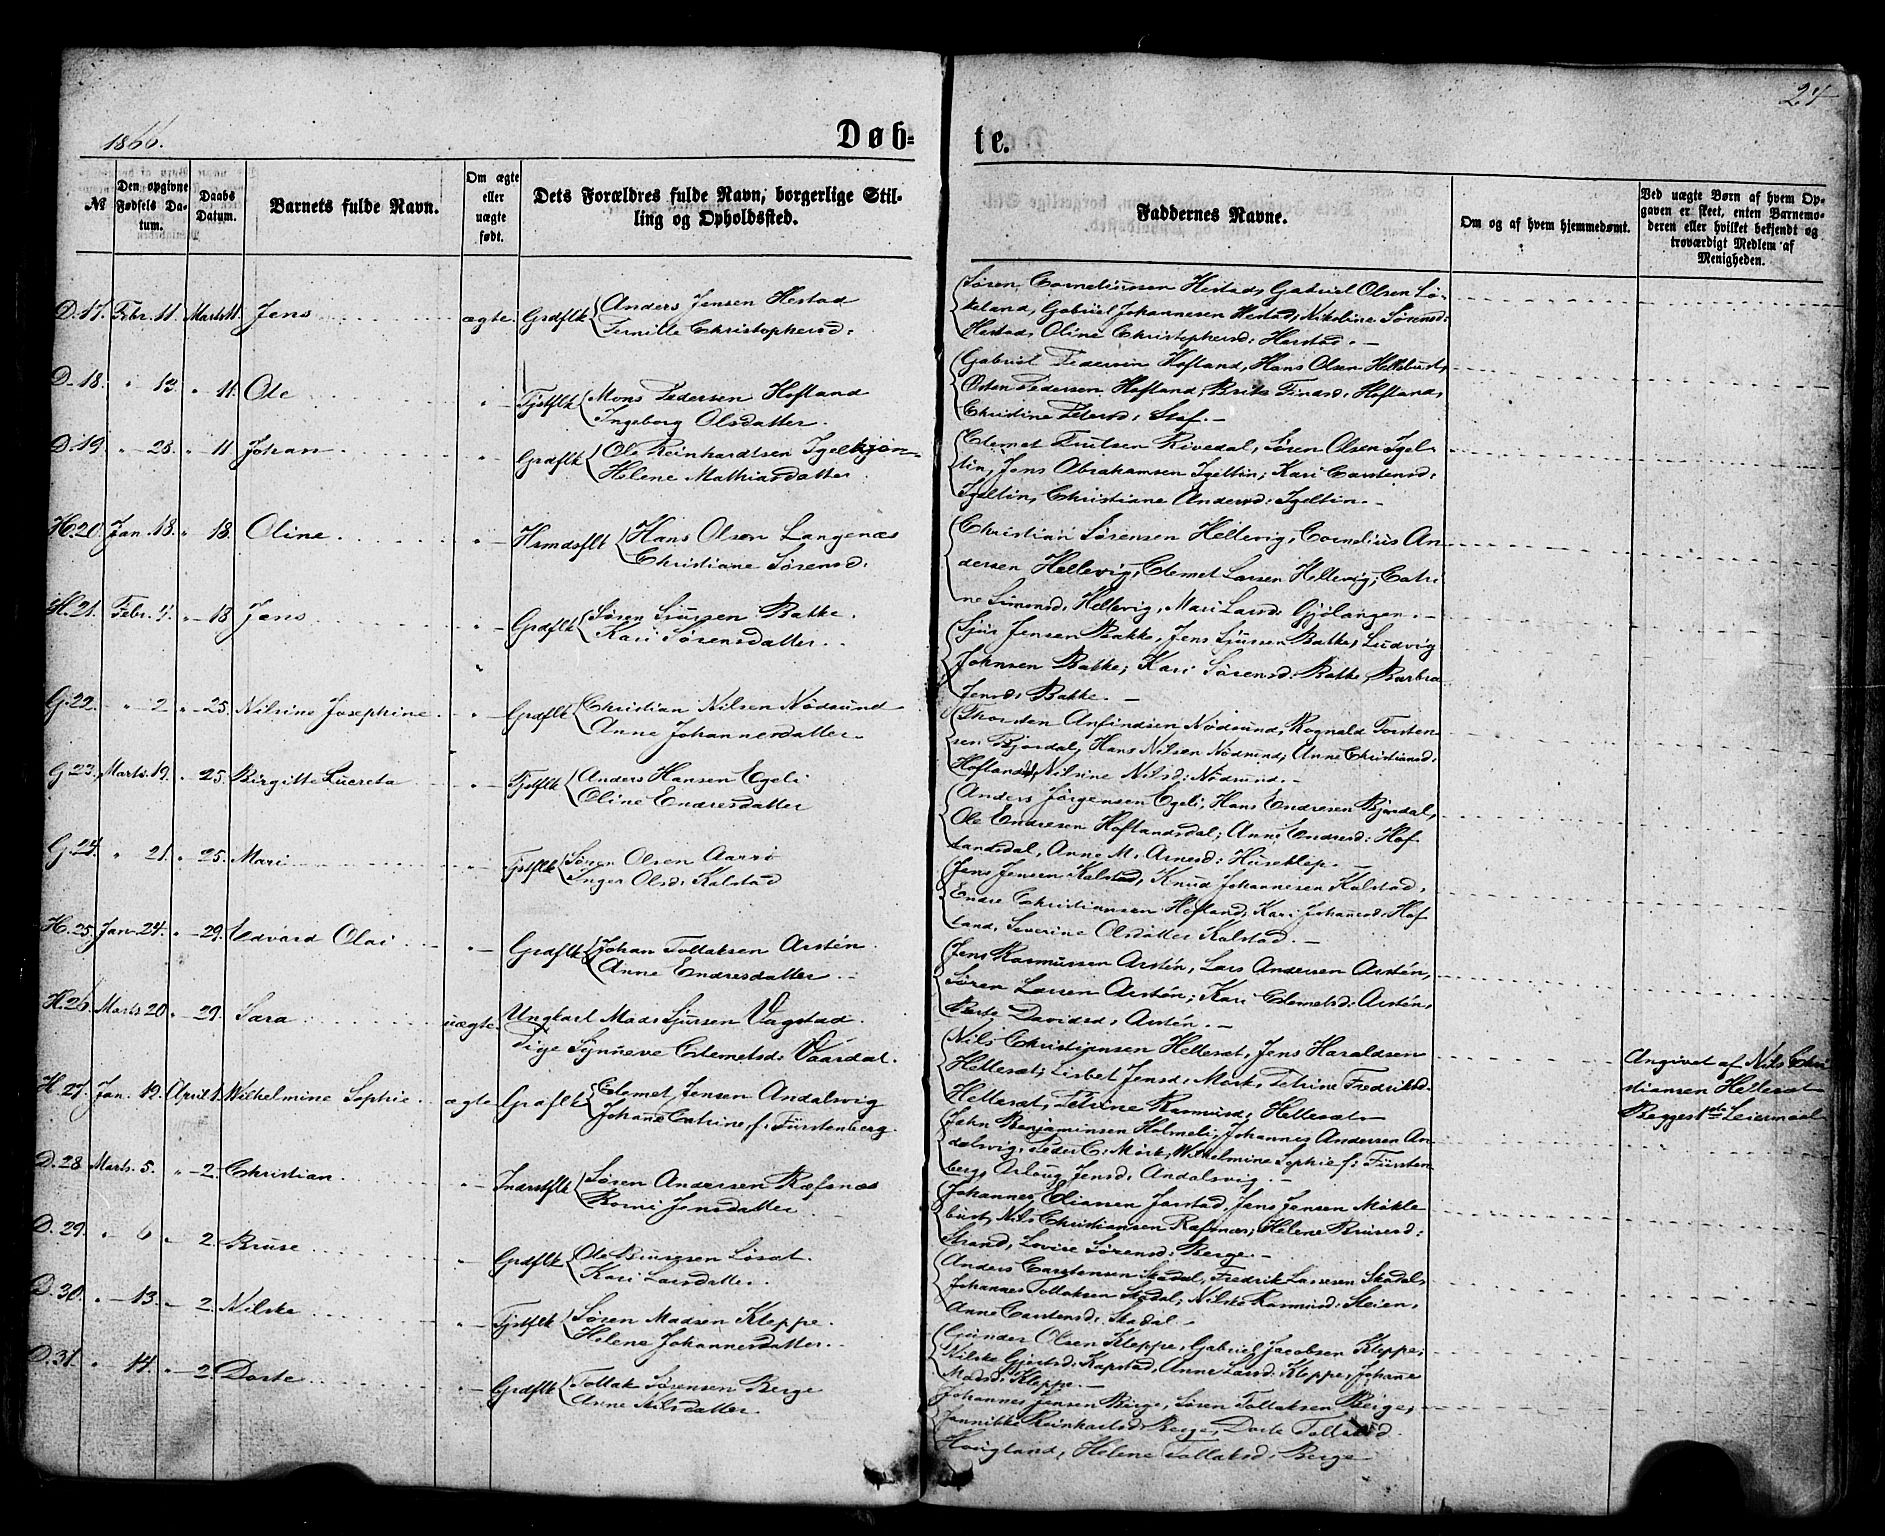 24
1866.
Døb-
te.
№
Den opgivne Fødsels Da-tum.
Daabs Datum.
Barnets fulde Navn.
Om ægte eller uægte født.
Dets Forældres fulde Navn, borgerlige Stil-
ling og Opholdssted.
Faddernes Navne.
Om og af hvem hjemmedømt.
Ved uægte Børn af hvem Op-
gaven er skeet, enten Barnemo-
deren eller hvilket bekjendt og
troværdigt Medlem af
Menigheden.
D. 17. Febr. 11. Marts 11. Jens ægte Grdflk Anders Jensen Hestad
Pernille Christophersd:
Søren Corneliussen Hestad, Gabriel Olsen Lø-
keland, Gabriel Johannesen Hestad, Nikoline Sørensd:
Hestad, Oline Christophersd: Harstad. -
D. 18. " 13. " 11. Ole " Tjstflk Mons Pedersen Hofland
Ingeborg Olsdatter.
Gabriel Pedersen Hofland, Hans Olsen Hellebust,
Østen Pedersen Hofland, Brite Findsd: Hofland,
Christine Pedersd: Staf. -
D. 19. " 28. " 11 Johan " Grdflk Ole Reinhardtsen Igelkjøn
Helene Mathiasdatter
Clemet Knutsen Rivedal, Søren Olsen Igel-
tin, Jens Abrahamsen Igeltin, Kari Carstensd:
Igeltin, Christiane Andersd: Igeltin. -
H. 20. Jan. 18. " 18. Oline " Hsmdsflk Hans Olsen Langenæs
Christiane Sørensd:
Christian Sørensen Hellevig, Cornelius An-
dersen Hellevig, Clemet Larsen Hellevig, Cathri-
ne Simensd: Hellevig, Mari Larsd: Gjølangen. -
H. 21. Febr. 4. " 18 Jens " Grdflk Søren Sjursen Bakke.
Kari Sørensdatter.
Sjur Jensen Bakke, Jens Sjursen Bakke, Ludvig
Johnsen Bakke, Kari Sørensd: Bakke, Barbra
Jensd: Bakke. -
G. 22. " 2 " 25. Nilsine Josephine " Grdflk Christian Nilsen Nødsund
Anne Johannesdatter.
Thorsten Anfindsen Nødsund, Rognald Torsten-
sen Bjordal, Hans Nilsen Nødsund, Anne Christiansd:
Hofland, Nilsine Nilsd: Nødsund. -
G. 23. Marts. 19. " 25. Birgitte Lucreta " Tjstflk Anders Hansen Egeli
Oline Endresdatter
Anders Jørgensen Egeli, Hans Endresen Bjordal,
Ole Endresen Hoflandsdal, Anne Endresd: Hof-
landsdal, Anne M. Arnesd: Huseklep. -
G. 24. " 21. " 25. Mari " Tjstflk Søren Olsen Aarrø
Inger Olsd: Kalstad
Jens Jensen Kalstad, Knud Johannesen Kalstad,
Endre Christiansen Hofland, Kari Johannsd: Hof-
land, Severine Olsdatter Kalstad. -
H. 25. Jan. 24. " 29. Edvard Olai " Grdflk Johan Tollaksen Arstén.
Anne Endresdatter
Jens Rasmussen Arstén, Lars Andersen Arstén,
Søren Larsen Arstén, Kari Clemetsd: Arstén,
Berte Davidsd: Arstén. -
H. 26. Marts 20. " 29. Sara uægte Ungkarl Mads Sjursen Vagstad.
Pige Synneve Clemetsd: Vaardal.
Nils Christiansen Hellesæt, Jens Haraldsen
Hellesæt, Lisbet Jensd: Mørk, Petrine Fredriksd:
Hellesæt, Petrine Rasmusd: Hellesæt
Angivet af Nils Chri
stiansen Hellesæt
Begges 1ste Leiermaal
H. 27. Jan. 19. April 1. Wilhelmine Sophie ægte Grdflk Clemet Jensen Andalsvig
Johane Catrine f: Fürstenberg.
John Benjaminsen Holmeli, Johannes Andersen An-
dalsvig, Peder C. Mørk, Wilhelmine Sophie f: Fürsten-
berg, Aslaug Jensd: Andalsvig. -
D. 28 Marts. 5. " 2. Christian " Indrstflk Søren Andersen Ræfsnæs
Borni Jensdatter
Johannes Eliassen Jarstad, Jens Jensen Møkle-
bust, Nils Christiansen Rafsnæs, Helene Brusesd:
Strand, Lovise Sørensd: Berge. -
D. 29. " 6 " 2. Bruse " Grdflk Ole Brusesen Løsæt
Kari Larsdatter.
Anders Carstensen Skadal, Fredrik Lassesen Skadal,
Johannes Tollaksen Skadal, Nilske Rasmusd: Steien,
Anne Carstensd: Skadal -
D. 30. " 13. " 2. Nilske " Tjstflk Søren Madsen Kleppe.
Helene Johannesdatter.
Gunder Olsen Kleppe, Gabriel Jacobsen Kleppe,
Nilske Gjertsd: Kapstad, Anne Larsd: Kleppe, Johane
Madsd: Kleppe -
D. 31. " 14. " 2 Dorte " Grdflk Tollak Sørensen Berge
Anne Nilsdatter.
Johannes Jensen Berge, Søren Tollaksen Berge,
Jannikke Reinhartsd: Berge, Dorte Tollaksd
Hougland, Helene Tollaksd: Berge